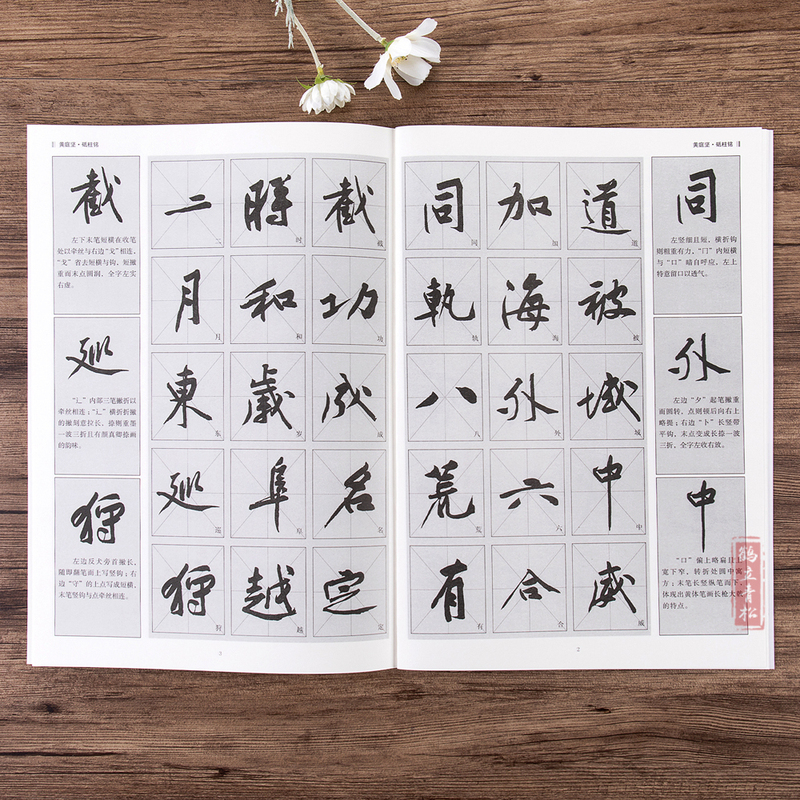 黄庭坚·砥柱铭
同
左竖细且短，横折钩
则粗重有力，“冂”内短横
与“口”暗自呼应，左上
特意留口以透气。
外
左边“夕”起笔撇重
而圆转，点则顿后向右上
略提；右边“卜”长竖带
平钩，末点变成长捺一波
三折，全字左收右放。
中
“口”偏上略扁且上
宽下窄，转折处圆中寓
方；末笔长竖纵笔而下，
体现出黄体笔画长枪大戟
的特点。
道被域中威
道被域中威
加海外六合
加海外六合
同執八荒有
同执八荒有
2
鹤立青松
黄庭坚·砥柱铭
截功成名定
截功成名定
時和歲阜越
时和岁阜越
二月東巡狩
二月东巡狩
截
左下末笔短横在收笔
处以牵丝与右边“戈”相连，
“戈”省去短横与钩，短撇
重而末点圆润，全字左实
右虚。
巡
“辶”内部三笔撇折以
牵丝相连；“辶”横折折撇
的撇刻意拉长，捺则重墨
一波三折且有颜真卿捺画
的韵味。
狩
左边反犬旁首撇长，
随即翻笔而上写竖钩；右
边“守”的上点写成短横，
末笔竖钩与点牵丝相连。
3